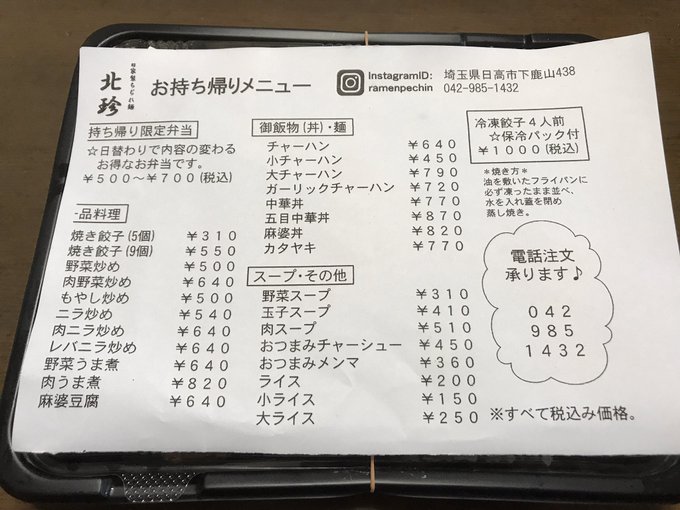 自家製ちぢれ麺
北珍
お持ち帰りメニュー
InstagramID:
ramenpechin
埼玉県日高市下鹿山438
042-985-1432
持ち帰り限定弁当
☆日替わりで内容の変わる
お得なお弁当です。
￥500～￥700(税込)
一品料理
焼き餃子(5個) ￥310
焼き餃子(9個) ￥550
野菜炒め ￥500
肉野菜炒め ￥640
もやし炒め ￥500
ニラ炒め ￥540
肉ニラ炒め ￥640
レバニラ炒め ￥640
野菜うま煮 ￥640
肉うま煮 ￥820
麻婆豆腐 ￥640
御飯物(丼)・麺
チャーハン ￥640
小チャーハン ￥450
大チャーハン ￥790
ガーリックチャーハン ￥720
中華丼 ￥770
五目中華丼 ￥870
麻婆丼 ￥820
カタヤキ ￥770
スープ・その他
野菜スープ ￥310
玉子スープ ￥410
肉スープ ￥510
おつまみチャーシュー ￥450
おつまみメンマ ￥360
ライス ￥200
小ライス ￥150
大ライス ￥250
冷凍餃子4人前
☆保冷パック付
￥1000(税込)
＊焼き方＊
油を敷いたフライパンに
必ず凍ったまま並べ、
水を入れ蓋を閉め
蒸し焼き。
電話注文
承ります♪
042
985
1432
※すべて税込み価格。